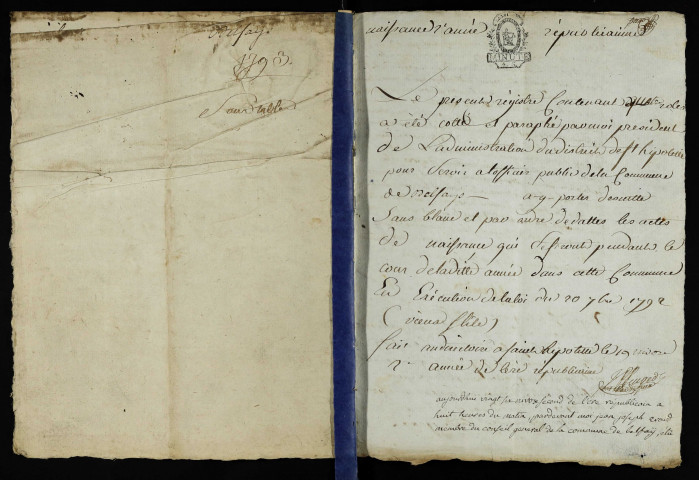 1793.
Sans table
naissance 2e année républicaine
MINUTE
Le présent régistre Contenant
a été cotté et paraphé par moi président
de Ladministration du district de st hipolitte
pour servir a loficier public de la Commune
de a-y-porter desuitte
Sans blanc et par ordre de dattes les actes
de naissance qui se feront pendant le
cour de laditte année dans cette Commune
En Exécution de la loi du 20 7bre 1792
(vieux stile)
fait au directoire a saint hipolitte le
2e année de l'ère républicaine
aujourdhui vingt second de l'ere républicain a
huit heures du matin, pardevant moi jean joseph
membre du conseil general de la commune de